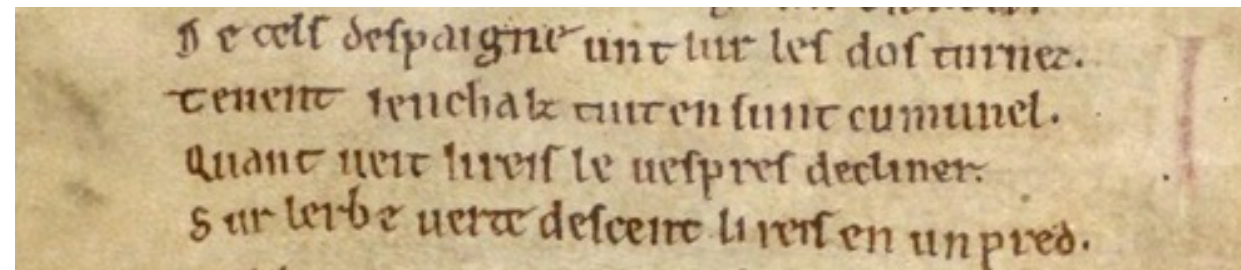 De cels despaigne unt lur les dos turnez.
Tenent lenchalz tuit en sunt cumunel.
Quant ueit li reis le uespres decliner.
Sur lerbe uerte descent li reis en un pred.